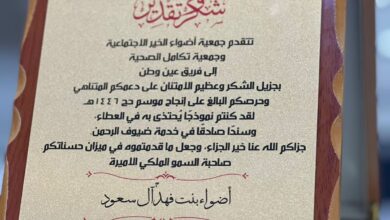 شكر وتقدير
تتقدم جمعية أضواء الخير الاجتماعية
وجمعية تكامل الصحية
إلى فريق عين وطن
بجزيل الشكر وعظيم الامتنان على دعمكم المتنامي
وحرصكم البالغ على إنجاح موسم حج ١٤٤٦هـ
لقد كنتم نموذجًا يُحتذى به في العطاء،
وسندًا صادقًا في خدمة ضيوف الرحمن
جزاكم الله عنا خير الجزاء، وجعل ما قدمتموه في ميزان حسناتكم
صاحبة السمو الملكي الأميرة
أضواء بنت فهد آل سعود